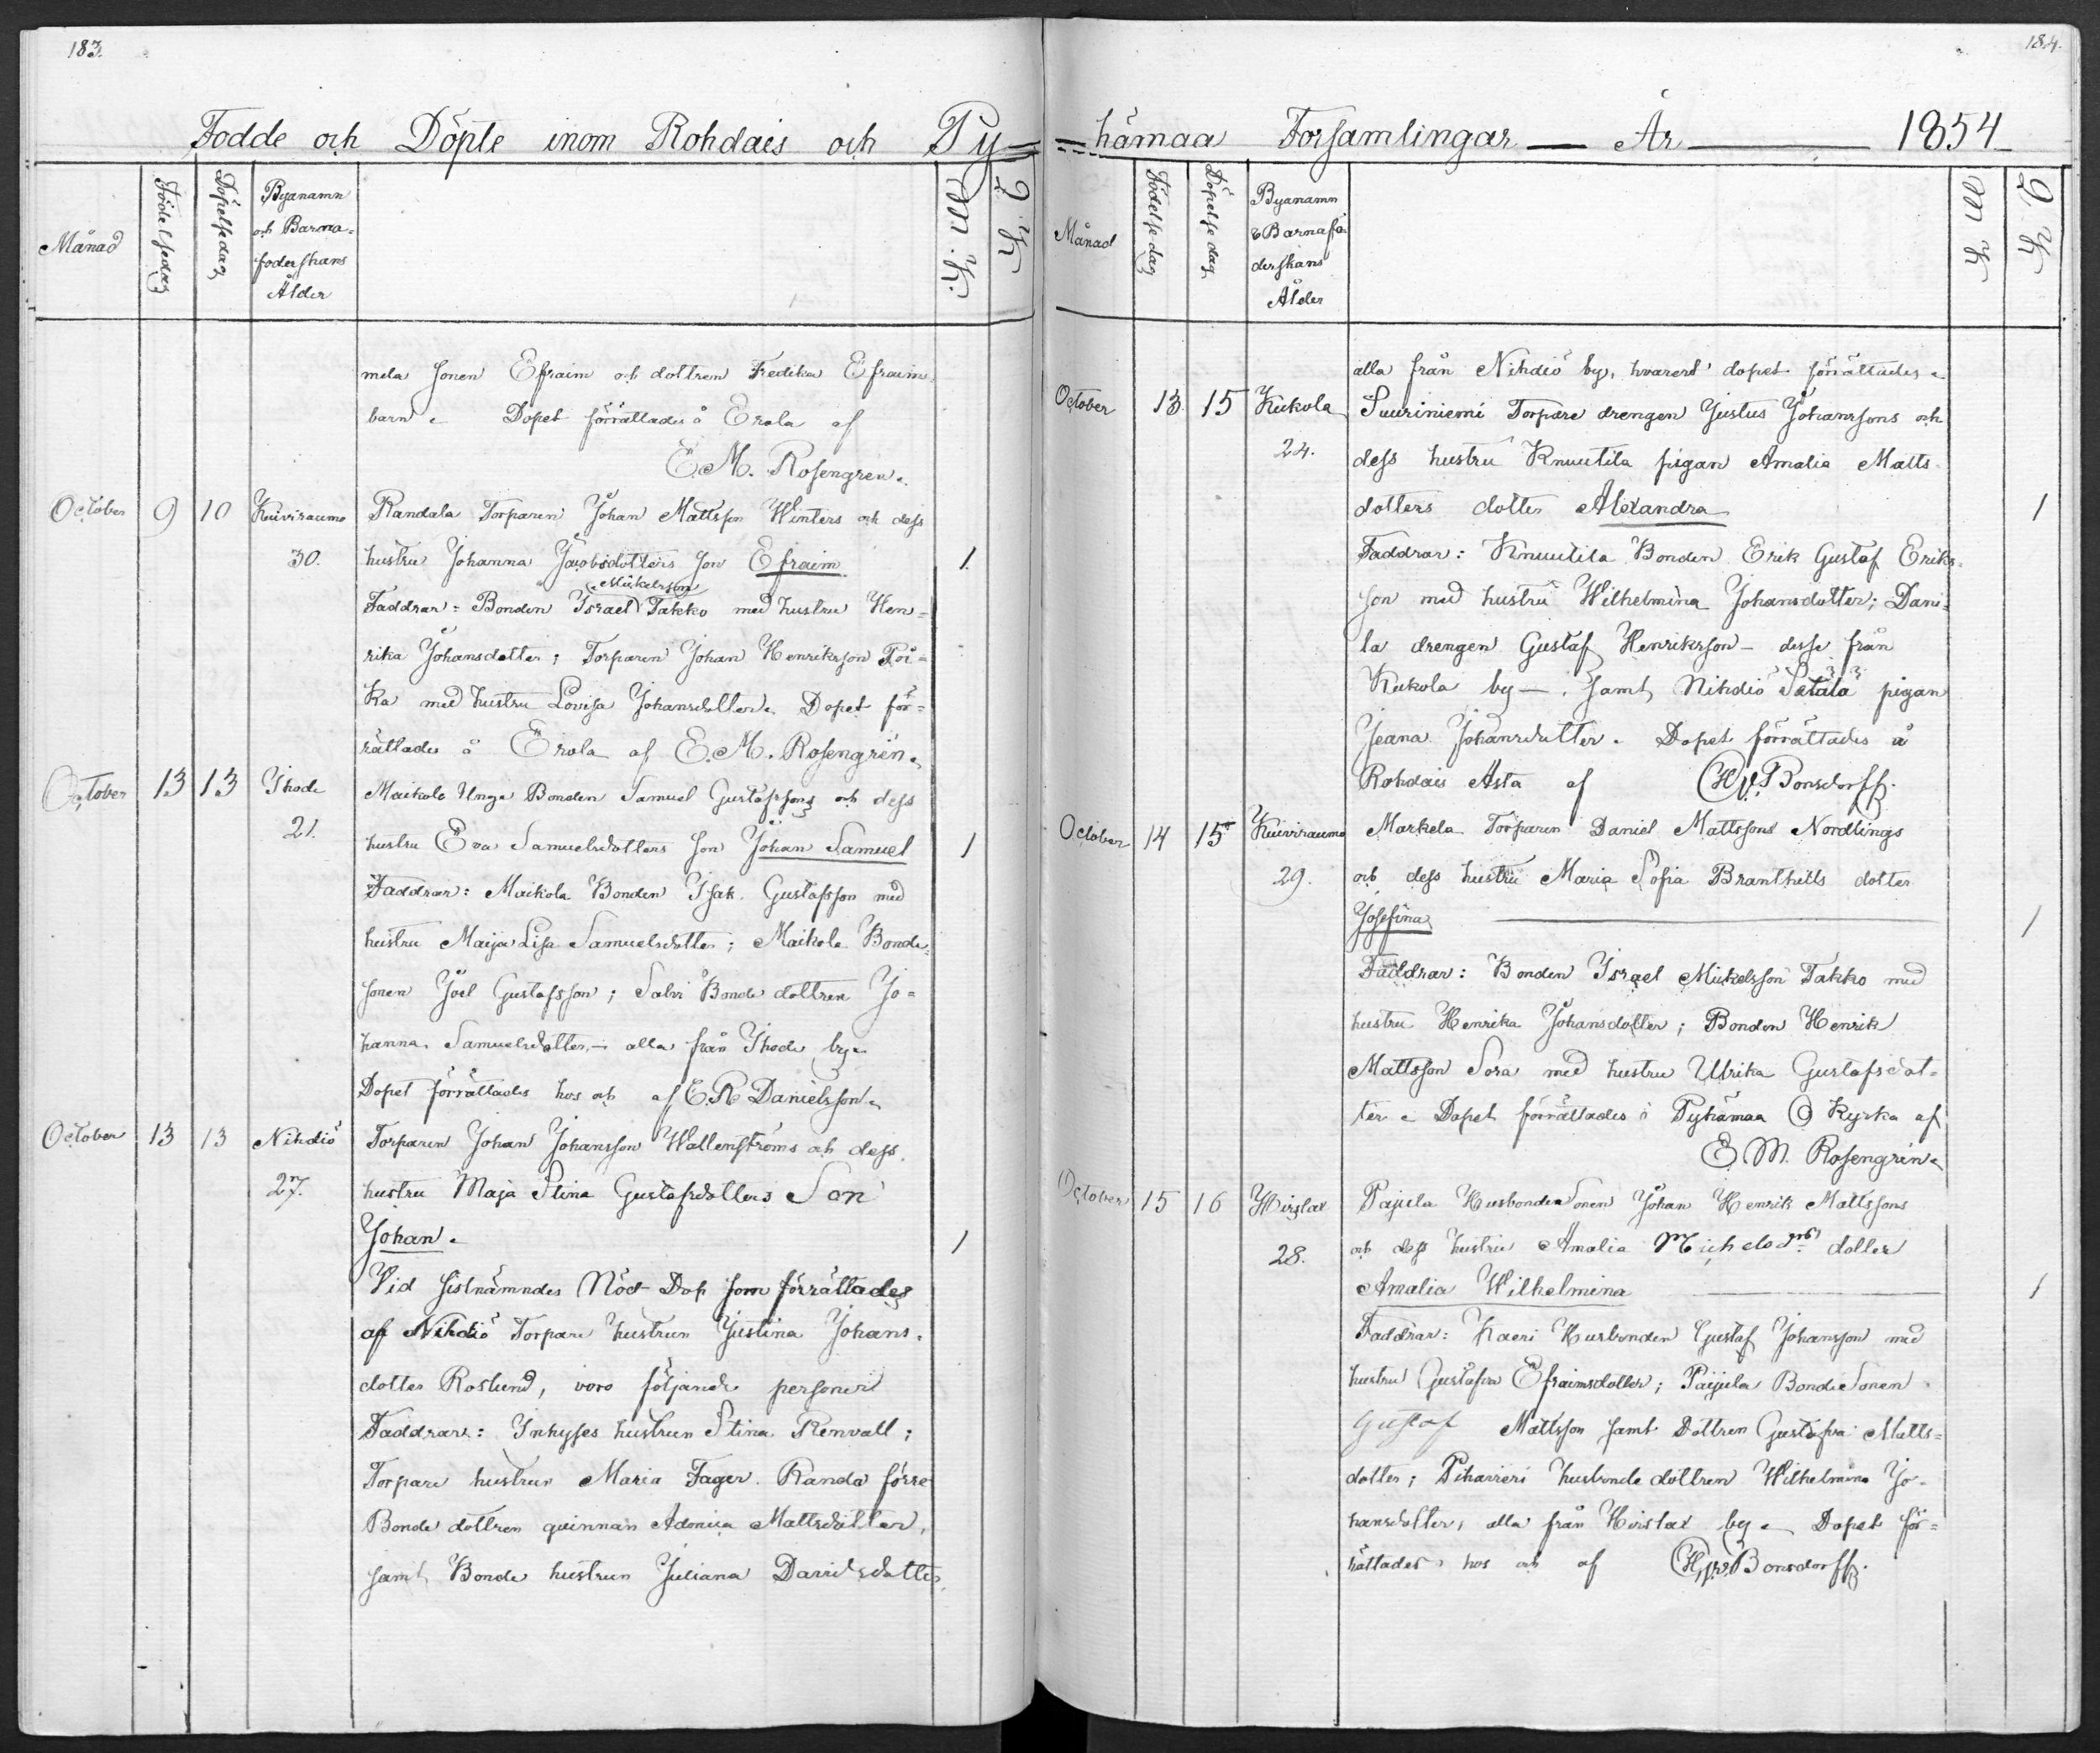 183.
Fodde och Döpte inom Rohdais och Py=
Månad
Födelsedag
Döpelsedag
Byanamn
och Barna=
foderskans
Ålder
M. K.
Q. K
mela sonen Efraim och dottren Fredika Efraims
barn. Dopet förrättades å Erola af
E. M. Rosengren.
October 9 10 Kuiviraumo Randala Torparen Johan Mattsson Winters och dess
30. hustru Johanna Jacobsdotters son Efraim 1.
Mickelsson
Faddrar: Bonden Israel Takko med hustru Hen=
rika Johansdotter; Torparen Johan Henriksson Pör=
ka med hustru Lovisa Johansdotter. Dopet för=
rättades å Erola af E. M. Rosengrén.
October 13 13 Ihode Maikola Unge Bonden Samuel Gustafssons och dess
21. hustru Eva Samuelsdotters son Johan Samuel 1
Faddrar: Maikola Bonden Isak Gustafsson med
hustru Maija Lisa Samuelsdotter; Maikola Bonde=
sonen Joel Gustafsson; Salvi Bonde dottren Jo=
hanna Samuelsdotter, alla från Ihode by.
Dopet förrättades hos och af C. R. Danielsson.
October 13 13 Nihdiö Torparen Johan Johansson Wallenströms och dess
27. hustru Maja Stina Gustafsdotters Son
Johan. 1
Vid sistnämndes Nöd Dop som förrättades
af Nihdiö Torpare hustrun Justina Johans=
dotter Roslund, voro följande personer
Faddrar: Inhyses hustrun Stina Renvall;
Torpare hustrun Maria Fager. Randa förre
Bonde dottren quinnan Adonia Mattsdotter,
samt Bonde hustrun Juliana Davidsdotter,
184.
hämaa Forsamlingar — År — 1854
Månad
Födelse dag
Döpelse dag
Byanamn
& Barnafö
derskans
Ålder
M K
Q. K
alla från Nihdiö by, hvarest dopet förrättades.
October 13. 15 Kukola Suuriniemi Torpare drengen Justus Johanssons och
24. dess hustru Knuutila pigan Amalia Matts
dotters dotter Alexandra 1
Faddrar: Knuutila Bonden Erik Gustaf Eriks=
son med hustru Wilhelmina Johansdotter; Dani=
la drengen Gustaf Henriksson — desse från
Kukola by —. samt Nihdiö Sätälä pigan
Jeana Johansdotter. Dopet förrättades å
Rohdais Asta af H. J. v. Bonsdorff.
October 14 15 Kuiviraumo Markela Torparen Daniel Mattssons Nordlings
29. och dess hustru Maria Sofia Branthills dotter
Josefina 1
Faddrar: Bonden Israel Mickelsson Takko med
hustru Henrika Johansdotter; Bonden Henrik
Mattsson Sora med hustru Ulrika Gustafsdot=
ter. Dopet förrättades i Pyhämaa Kyrka af
E. M. Rosengrén.
October 15 16 Hirslax Pajula Husbonde Sonen Johan Henrik Mattssons
28. och dess hustru Amalia Michels dotter
Amalia Wilhelmina 1
Faddrar: Kaeri Husbonden Gustaf Johansson med
hustru Gustafva Efraimsdotter; Paijula Bonde Sonen
Gustaf Mattsson samt Dottren Gustafva Matts=
dotter; Piharieri husbonde dottren Wilhelmina Jo=
hansdotter, alla från Hirslax by. Dopet för=
rättades hos och af H. J. v. Bonsdorff.